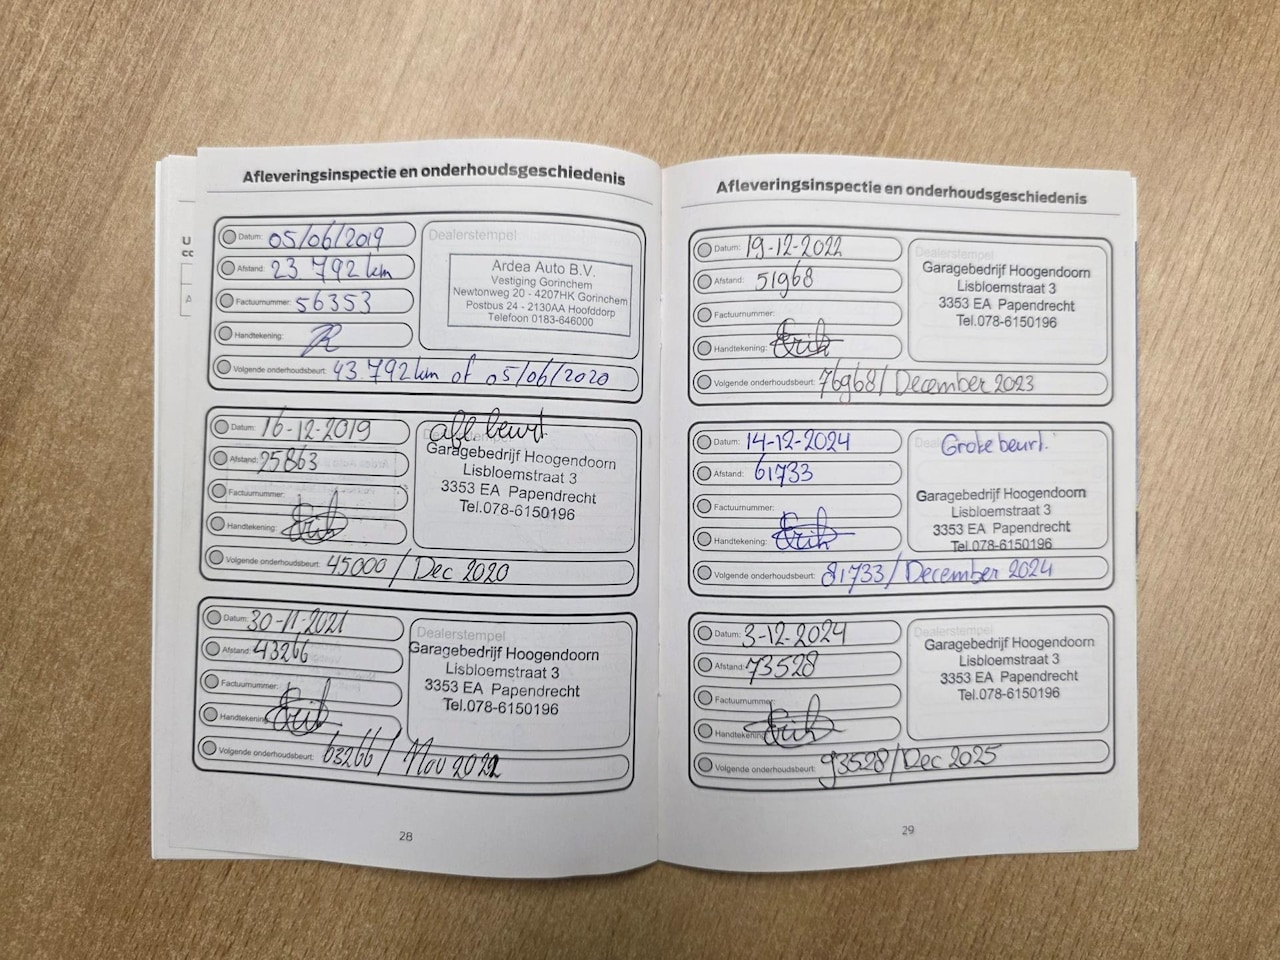 Afleveringsinspectie en onderhoudsgeschiedenis
Datum: 05/06/2019
Afstand: 23 792 km
Factuurnummer: 56353
Handtekening:
Volgende onderhoudsbeurt: 43.792 km of 05/06/2020
Dealerstempel
Ardea Auto B.V.
Vestiging Gorinchem
Newtonweg 20 - 4207HK Gorinchem
Postbus 24 - 2130AA Hoofddorp
Telefoon 0183-646000
Datum: 16-12-2019
Afstand: 25863
Factuurnummer:
Handtekening:
Volgende onderhoudsbeurt: 45000 / Dec 2020
beurt
Garagebedrijf Hoogendoorn
Lisbloemstraat 3
3353 EA Papendrecht
Tel.078-6150196
Datum: 30-11-2021
Afstand: 43266
Factuurnummer:
Handtekening:
Volgende onderhoudsbeurt: 63266 / Nov 2022
Dealerstempel
Garagebedrijf Hoogendoorn
Lisbloemstraat 3
3353 EA Papendrecht
Tel.078-6150196
28
Afleveringsinspectie en onderhoudsgeschiedenis
Datum: 19-12-2022
Afstand: 51968
Factuurnummer:
Handtekening:
Volgende onderhoudsbeurt: 76968 / December 2023
Dealerstempel
Garagebedrijf Hoogendoorn
Lisbloemstraat 3
3353 EA Papendrecht
Tel.078-6150196
Datum: 14-12-2024
Afstand: 61733
Factuurnummer:
Handtekening:
Volgende onderhoudsbeurt: 81733 / December 2024
Grote beurt.
Garagebedrijf Hoogendoorn
Lisbloemstraat 3
3353 EA Papendrecht
Tel.078-6150196
Datum: 3-12-2024
Afstand: 73528
Factuurnummer:
Handtekening:
Volgende onderhoudsbeurt: 93528 / Dec 2025
Dealerstempel
Garagebedrijf Hoogendoorn
Lisbloemstraat 3
3353 EA Papendrecht
Tel.078-6150196
29